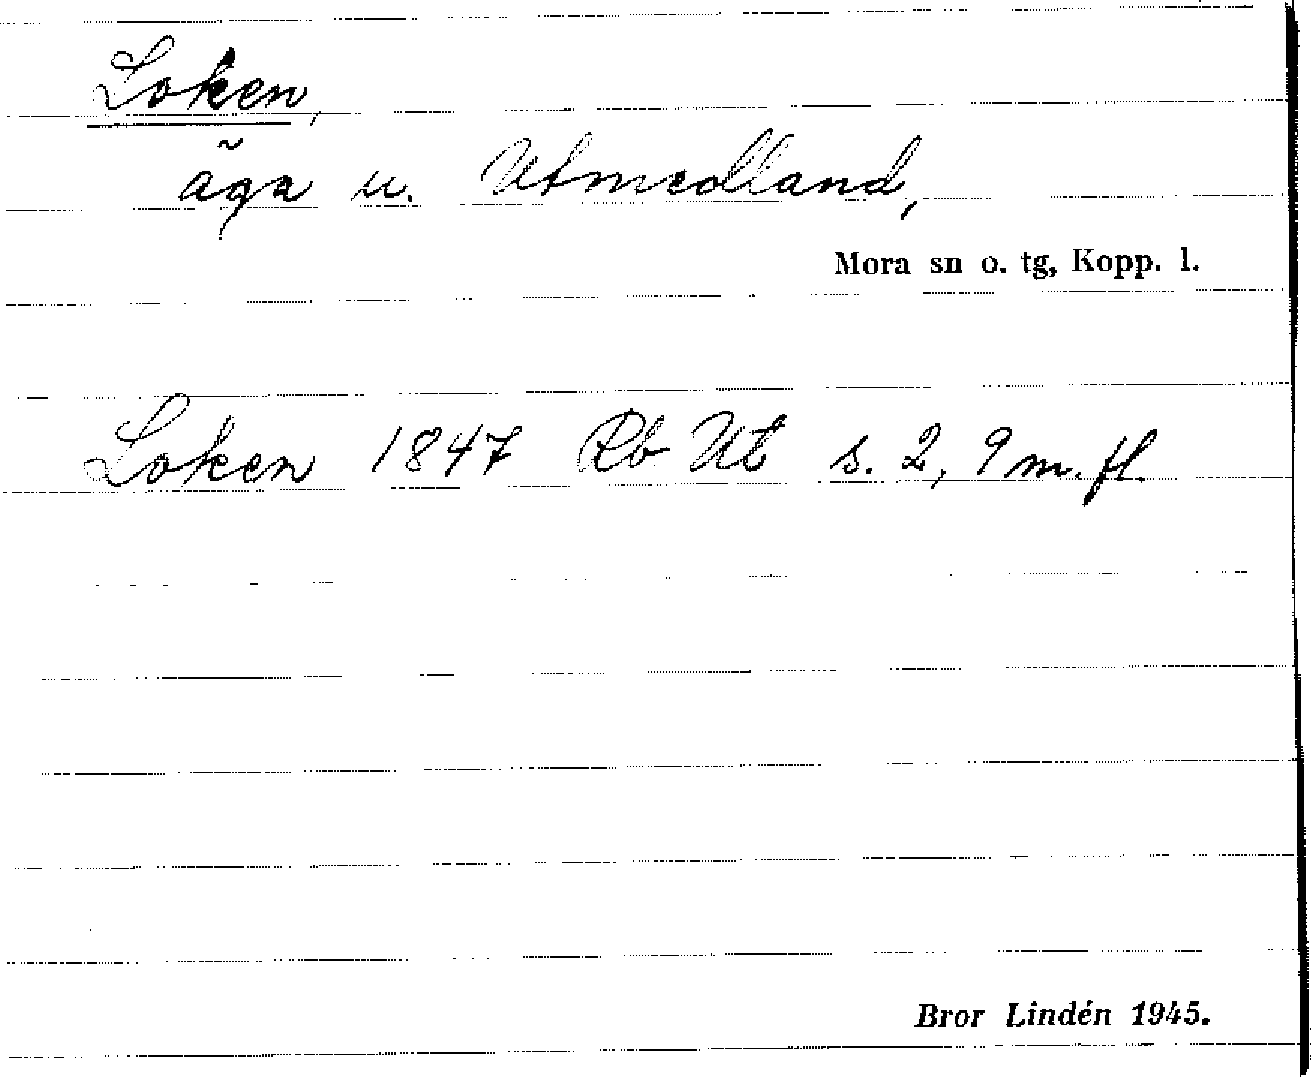 Loken,
äga u. Utmedland,
Mora sn o. tg, Kopp. l.
Loken 1847 Rb Ut s. 2, 9 m. fl.
Bror Lindén 1945.